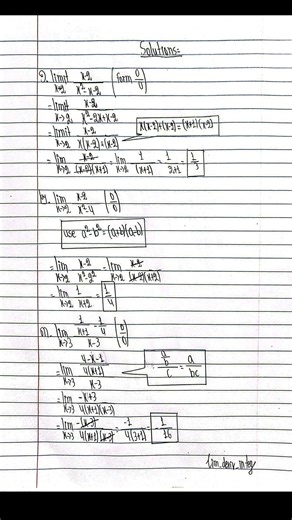 Solutions:
l). limit x→2 x-2/x²-x-2 (form 0/0)
= limit x→2 x-2/x²-2x+x-2
= limit x→2 x-2/x(x-2)+(x-2) x(x-2)+(x-2) = (x+1)(x-2)
= lim x→2 x-2/(x-2)(x+1) = lim x→2 1/(x+1) = 1/2+1 = 1/3
lim x→2 x-2/x²-4 (0/0)
use a²-b² = (a+b)(a-b)
= lim x→2 x-2/x²-2² = lim x→2 x-2/(x-2)(x+2)
= lim x→2 1/x+2 = 1/4
m. lim x→3 1/x+1 - 1/4/x-3 (0/0)
= lim x→3 4-x-1/4(x+1)/x-3 = a/b/c = a/bc
= lim x→3 -x+3/4(x+1)(x-3)
= lim x→3 -(x-3)/4(x+1)(x-3) = -1/4(3+1) = -1/16
lim_deriv_integ